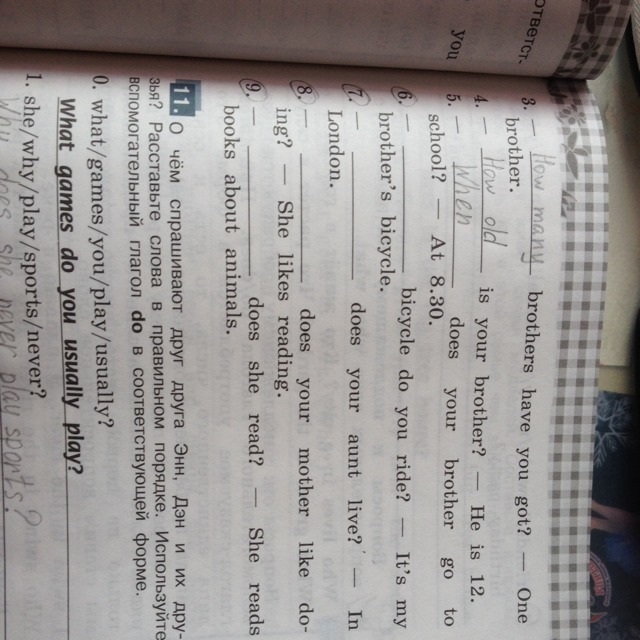 ответст.
you
3. — How many brothers have you got? — One
brother.
4. — How old is your brother? — He is 12.
5. — When does your brother go to
school? — At 8.30.
6. — ________ bicycle do you ride? — It's my
brother's bicycle.
7. — ________ does your aunt live? — In
London.
8. — ________ does your mother like do-
ing? — She likes reading.
9. — ________ does she read? — She reads
books about animals.
11. О чём спрашивают друг друга Энн, Дэн и их дру-
зья? Расставьте слова в правильном порядке. Используйте
вспомогательный глагол do в соответствующей форме.
0. what/games/you/play/usually?
What games do you usually play?
1. she/why/play/sports/never?
Why does she never play sports?